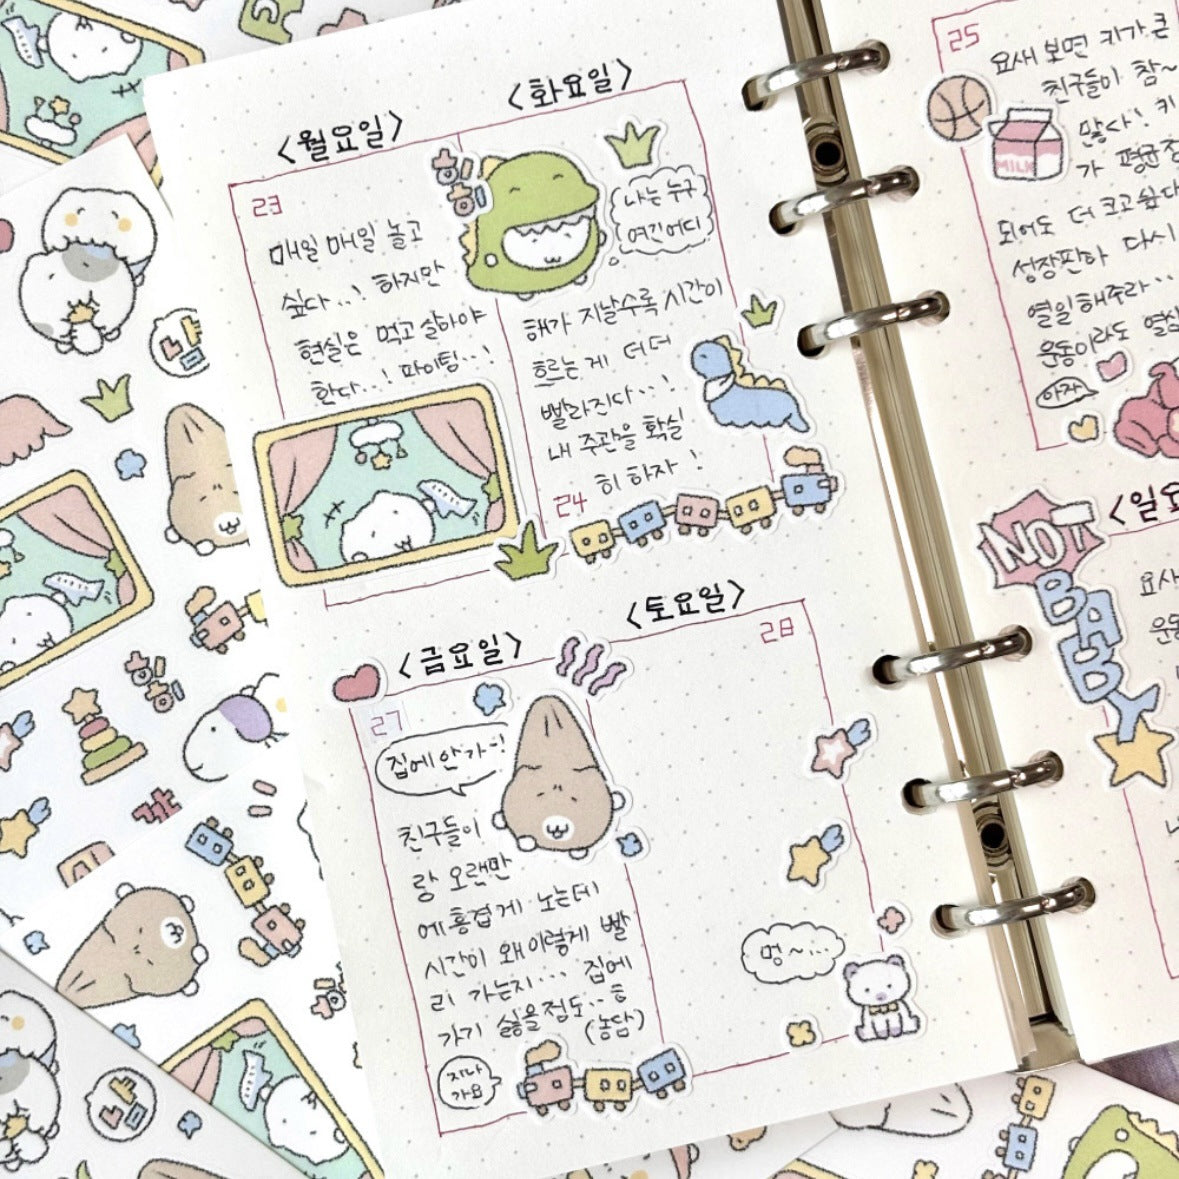 <월요일>
23
매일 매일 놀고
싶다..! 하지만
현실은 먹고 살아야
한다..! 파이팅..!
<화요일>
나는 누구
여긴 어디
해가 지날수록 시간이
흐르는 게 더더
빨라진다..!
내 주관을 확실
히 하자 !
24
<금요일>
27
집에 안가~!
친구들이
랑 오랜만
에 흥겹게 노는데
시간이 왜이렇게 빨
리 가는지... 집에
가기 싫을정도..ㅎ
(농담)
지나
가요
<토요일>
28
멍~...
25
요새 보면 키가 큰
친구들이 참~
많다! 키
가 평균
되어도 더 크고 싶다
성장판아 다시
열일해주라..
운동이라도 열심
아자
MILK
NO!
BABY
<일요
요새
운동